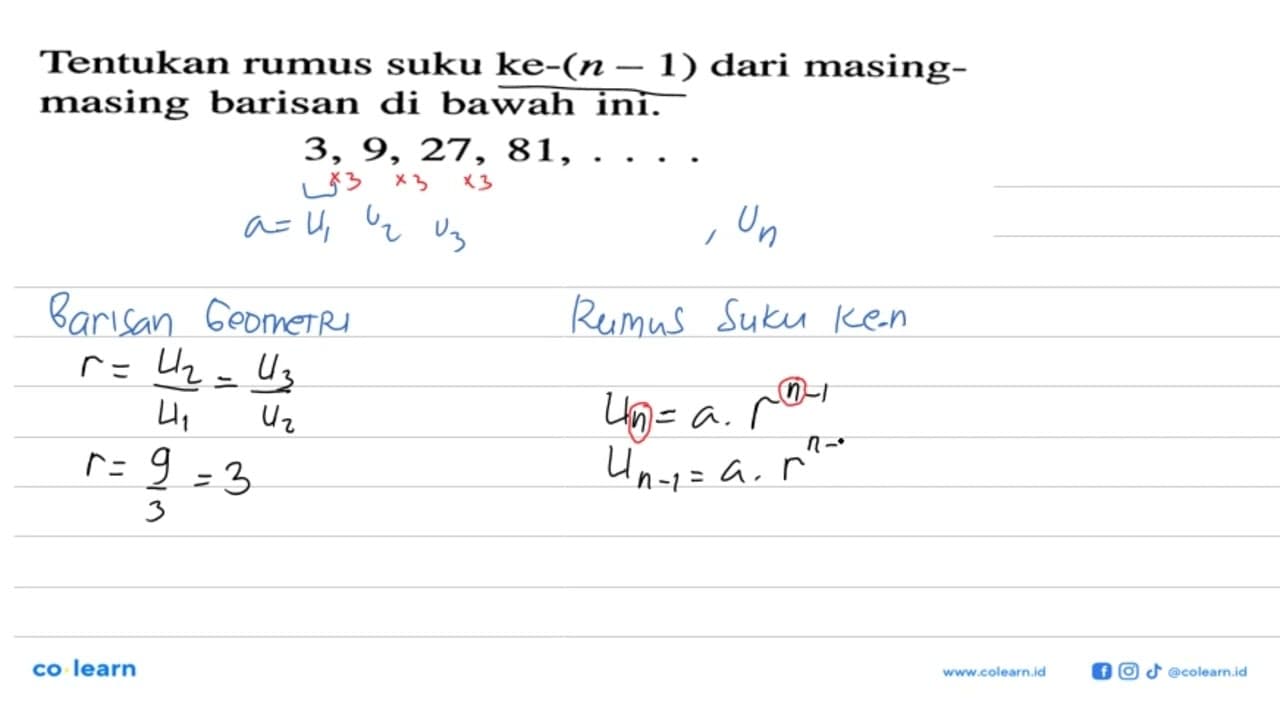 Tentukan rumus suku ke-(n − 1) dari masing-
masing barisan di bawah ini.
3, 9, 27, 81, . . . .
×3 ×3 ×3
a = U₁ U₂ U₃ , Uₙ
Barisan Geometri Rumus Suku ke-n
r = U₂/U₁ = U₃/U₂
Uₙ = a . r^(n-1)
r = 9/3 = 3
Uₙ₋₁ = a . r^(n-
co learn
www.colearn.id @colearn.id